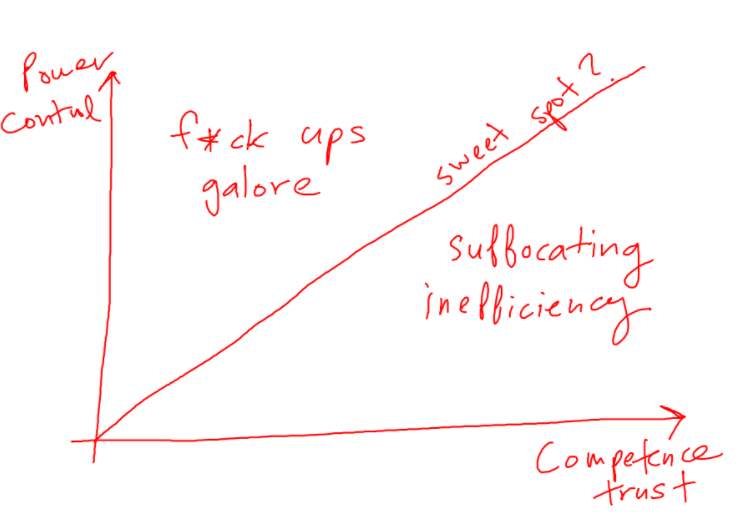 Power
Control
f*ck ups
galore
sweet spot?
suffocating
inefficiency
Competence
trust